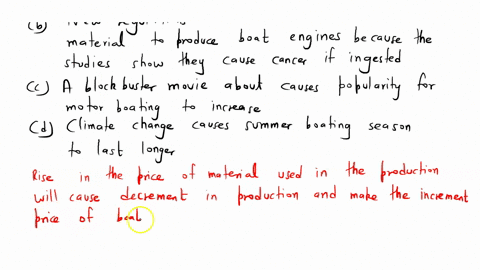 (b)
material to produce boat engines because the
studies show they cause cancer if ingested
(c) A blockbuster movie about causes popularity for
motor boating to increase
(d) Climate change causes summer boating season
to last longer
Rise in the price of material used in the production
will cause decrement in production and make the increment
price of boat